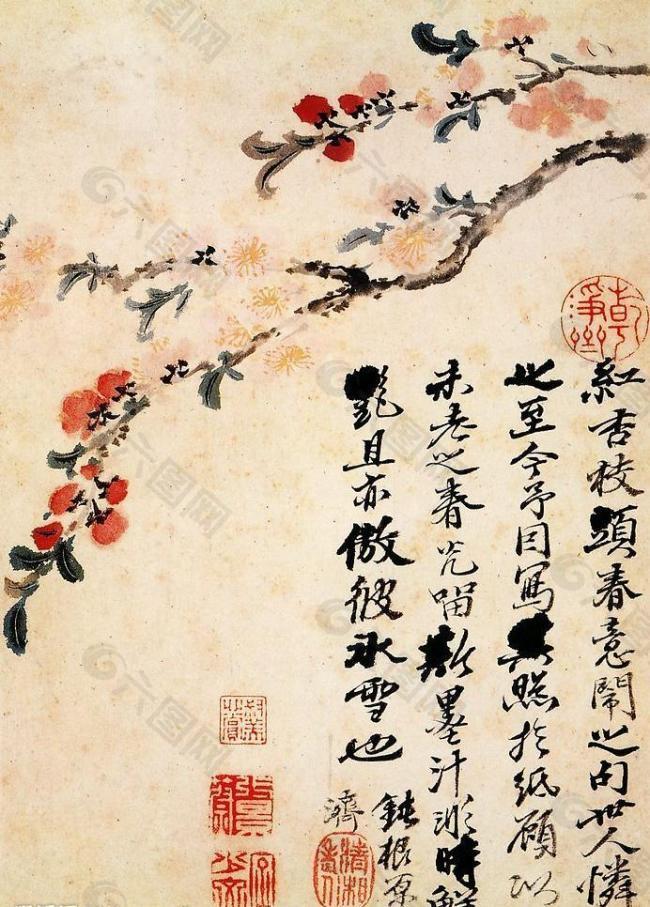 紅杏枝頭春意鬧之句世人憐
之至今予因寫其照於紙顧以
未老之春光留斯墨汁時鮮
艷且亦傲彼冰雪也
鈍根原
濟
六图网